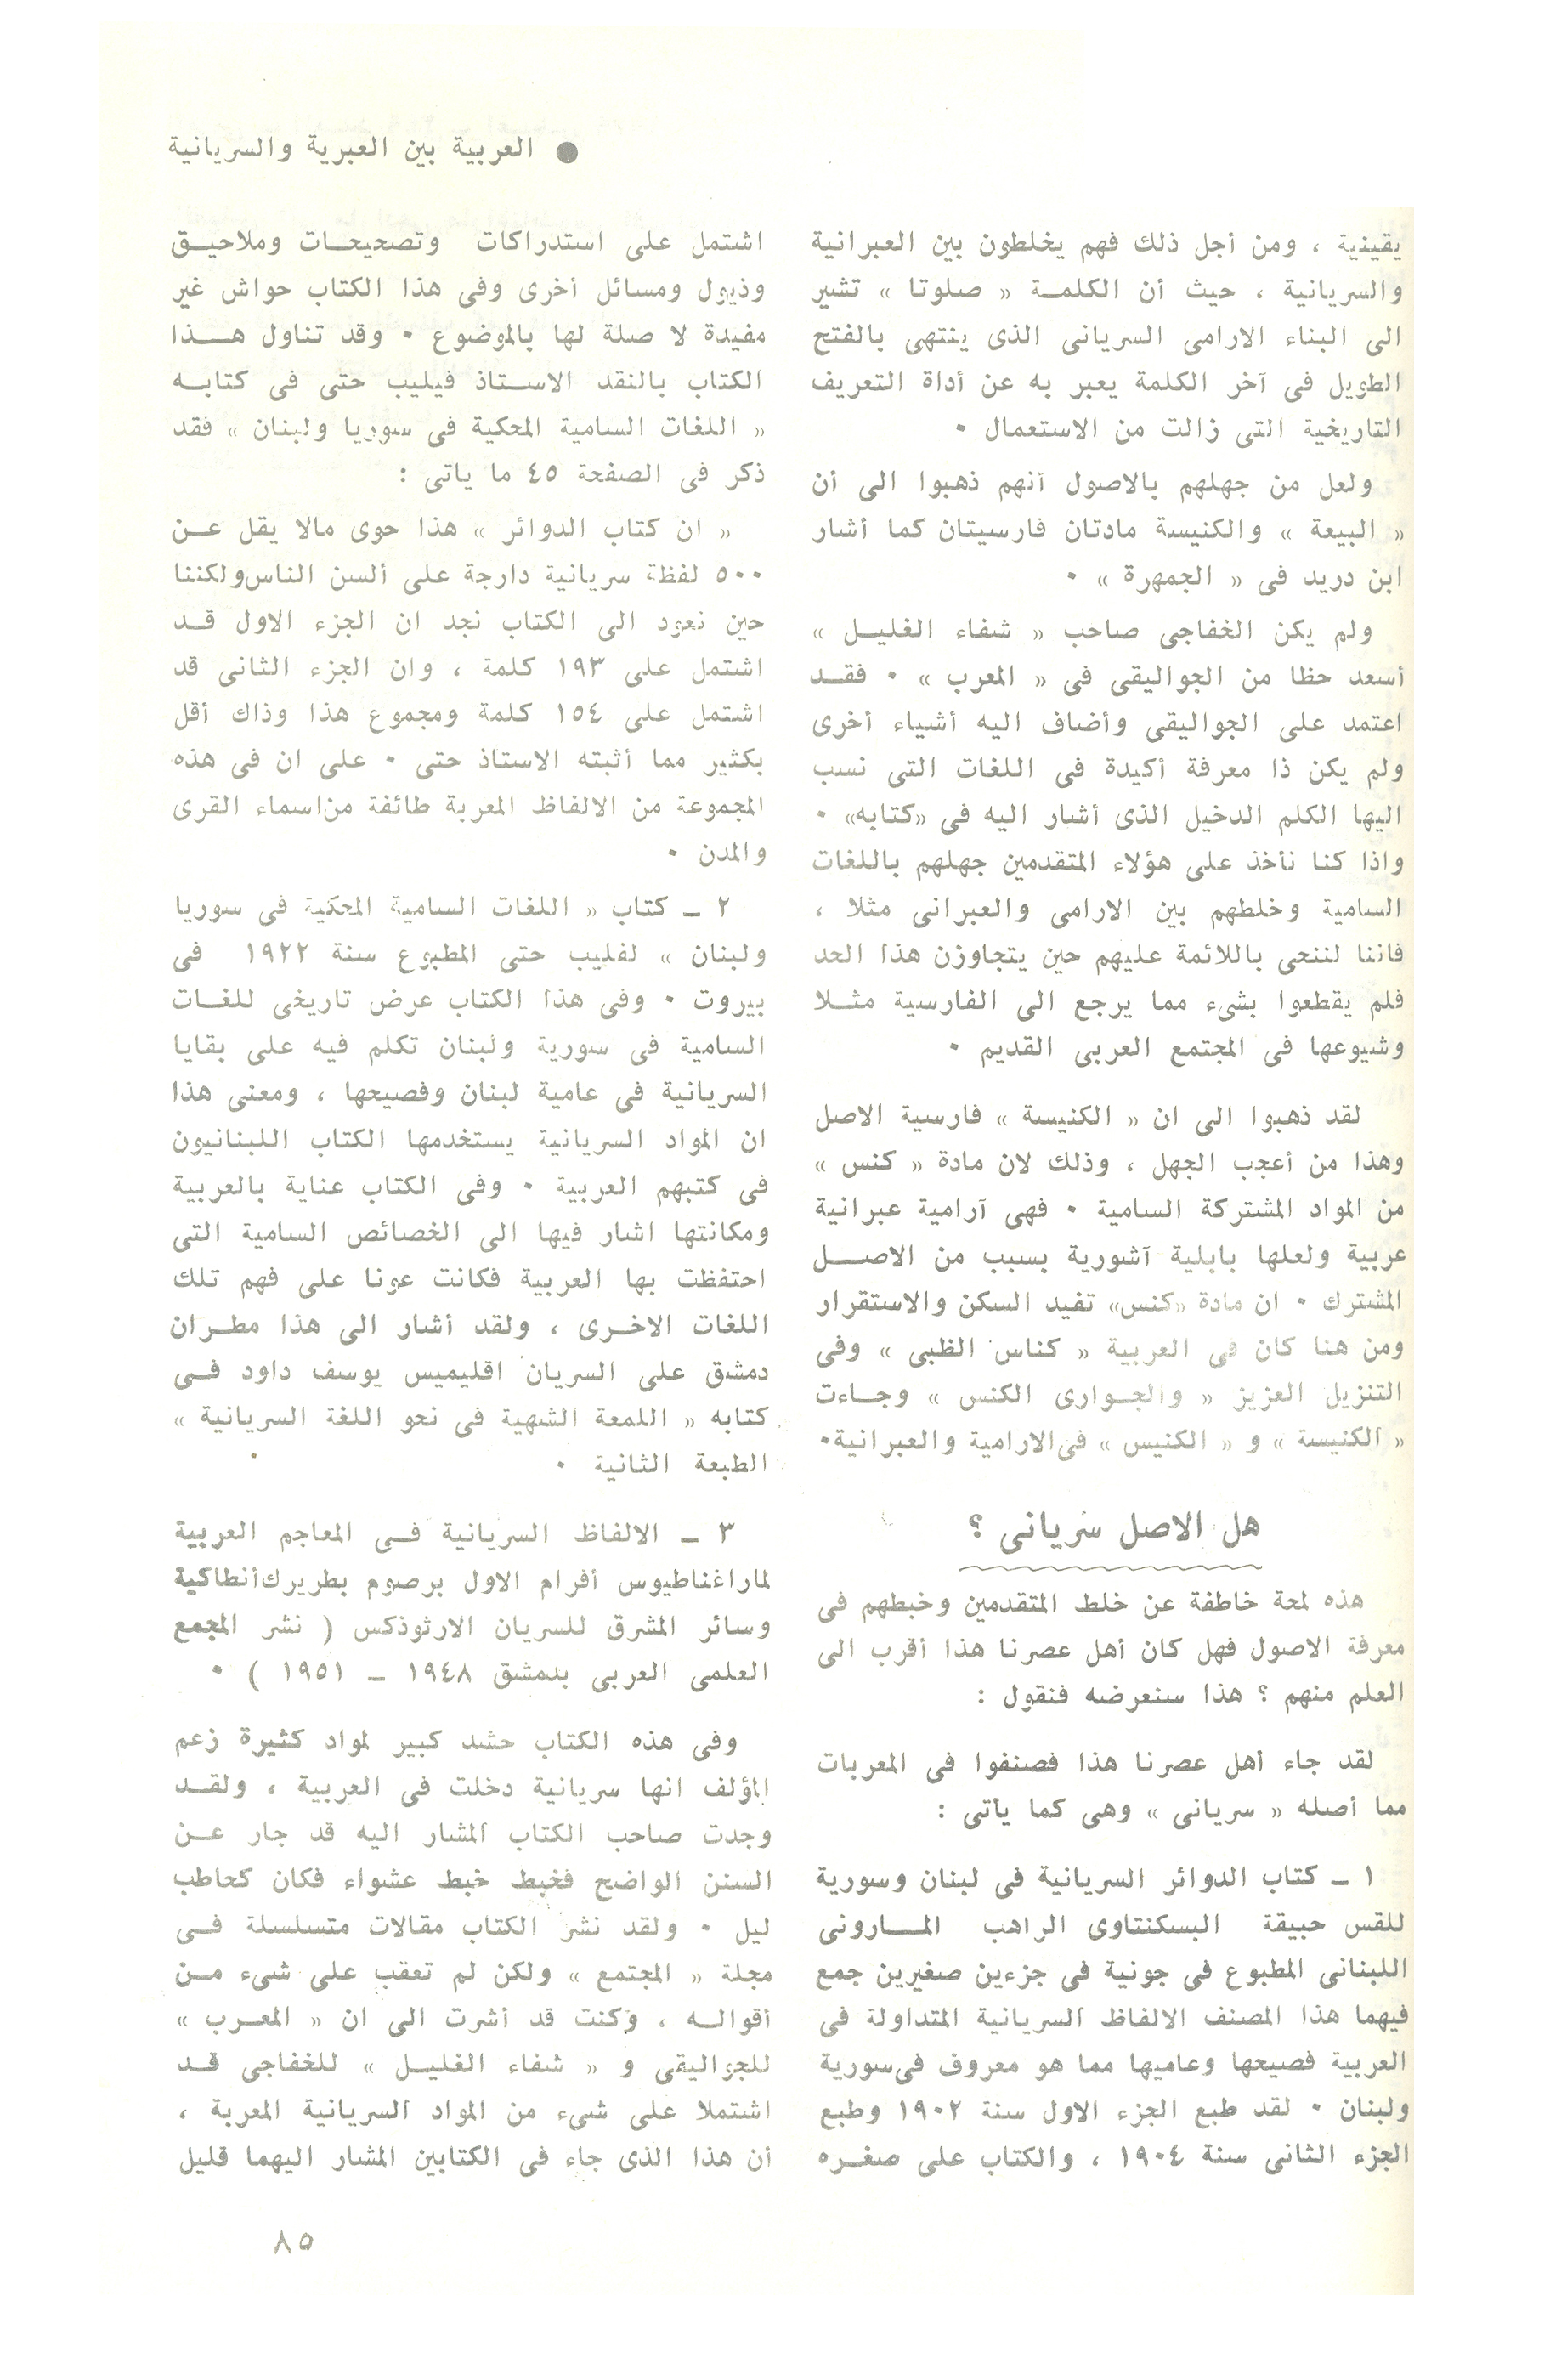 ● العربية بين العبرية والسريانية
يقينية ، ومن أجل ذلك فهم يخلطون بين العبرانية
والسريانية ، حيث أن الكلمة « صلوتا » تشير
الى البناء الارامى السريانى الذى ينتهى بالفتح
الطويل فى آخر الكلمة يعبر به عن أداة التعريف
التاريخية التى زالت من الاستعمال ٠
ولعل من جهلهم بالاصول أنهم ذهبوا الى أن
« البيعة » والكنيسة مادتان فارسيتان كما أشار
ابن دريد فى « الجمهرة » ٠
ولم يكن الخفاجى صاحب « شفاء الغليل »
أسعد حظا من الجواليقى فى « المعرب » ٠ فقد
اعتمد على الجواليقى وأضاف اليه أشياء أخرى
ولم يكن ذا معرفة أكيدة فى اللغات التى نسب
اليها الكلم الدخيل الذى أشار اليه فى «كتابه» ٠
واذا كنا نأخذ على هؤلاء المتقدمين جهلهم باللغات
السامية وخلطهم بين الارامى والعبرانى مثلا ،
فاننا لننحى باللائمة عليهم حين يتجاوزن هذا الحد
فلم يقطعوا بشىء مما يرجع الى الفارسية مثلا
وشيوعها فى المجتمع العربى القديم ٠
لقد ذهبوا الى ان « الكنيسة » فارسية الاصل
وهذا من أعجب الجهل ، وذلك لان مادة « كنس »
من المواد المشتركة السامية ٠ فهى آرامية عبرانية
عربية ولعلها بابلية آشورية بسبب من الاصل
المشترك ٠ ان مادة «كنس» تفيد السكن والاستقرار
ومن هنا كان فى العربية « كناس الظبى » وفى
التنزيل العزيز « والجوارى الكنس » وجاءت
« الكنيسة » و « الكنيس » فى الارامية والعبرانية٠
هل الاصل سريانى ؟
هذه لمحة خاطفة عن خلط المتقدمين وخبطهم فى
معرفة الاصول فهل كان أهل عصرنا هذا أقرب الى
العلم منهم ؟ هذا سنعرضه فنقول :
لقد جاء أهل عصرنا هذا فصنفوا فى المعربات
مما أصله « سريانى » وهى كما يأتى :
١ ـ كتاب الدوائر السريانية فى لبنان وسورية
للقس حبيقة البسكنتاوى الراهب المارونى
اللبنانى المطبوع فى جونية فى جزءين صغيرين جمع
فيهما هذا المصنف الالفاظ السريانية المتداولة فى
العربية فصيحها وعاميها مما هو معروف فى سورية
ولبنان ٠ لقد طبع الجزء الاول سنة ١٩٠٢ وطبع
الجزء الثانى سنة ١٩٠٤ ، والكتاب على صغره
اشتمل على استدراكات وتصحيحات وملاحيق
وذيول ومسائل أخرى وفى هذا الكتاب حواش غير
مفيدة لا صلة لها بالموضوع ٠ وقد تناول هذا
الكتاب بالنقد الاستاذ فيليب حتى فى كتابه
« اللغات السامية المحكية فى سوريا ولبنان » فقد
ذكر فى الصفحة ٤٥ ما ياتى :
« ان كتاب الدوائر » هذا حوى مالا يقل عن
٥٠٠ لفظة سريانية دارجة على ألسن الناس ولكننا
حين نعود الى الكتاب نجد ان الجزء الاول قد
اشتمل على ١٩٣ كلمة ، وان الجزء الثانى قد
اشتمل على ١٥٤ كلمة ومجموع هذا وذاك أقل
بكثير مما أثبته الاستاذ حتى ٠ على ان فى هذه
المجموعة من الالفاظ المعربة طائفة من اسماء القرى
والمدن ٠
٢ ـ كتاب « اللغات السامية المحكية فى سوريا
ولبنان » لفليب حتى المطبوع سنة ١٩٢٢ فى
بيروت ٠ وفى هذا الكتاب عرض تاريخى للغات
السامية فى سورية ولبنان تكلم فيه على بقايا
السريانية فى عامية لبنان وفصيحها ، ومعنى هذا
ان المواد السريانية يستخدمها الكتاب اللبنانيون
فى كتبهم العربية ٠ وفى الكتاب عناية بالعربية
ومكانتها اشار فيها الى الخصائص السامية التى
احتفظت بها العربية فكانت عونا على فهم تلك
اللغات الاخرى ، ولقد أشار الى هذا مطران
دمشق على السريان اقليميس يوسف داود فى
كتابه « اللمعة الشهية فى نحو اللغة السريانية »
الطبعة الثانية ٠
٣ ـ الالفاظ السريانية فى المعاجم العربية
لماراغناطيوس أفرام الاول برصوم بطريرك أنطاكية
وسائر المشرق للسريان الارثوذكس ( نشر المجمع
العلمى العربى بدمشق ١٩٤٨ ـ ١٩٥١ ) ٠
وفى هذه الكتاب حشد كبير لمواد كثيرة زعم
المؤلف انها سريانية دخلت فى العربية ، ولقد
وجدت صاحب الكتاب المشار اليه قد جار عن
السنن الواضح فخبط خبط عشواء فكان كحاطب
ليل ٠ ولقد نشر الكتاب مقالات متسلسلة فى
مجلة « المجتمع » ولكن لم تعقب على شىء من
أقواله ، وكنت قد أشرت الى ان « المعرب »
للجواليقى و « شفاء الغليل » للخفاجى قد
اشتملا على شىء من المواد السريانية المعربة ،
أن هذا الذى جاء فى الكتابين المشار اليهما قليل
٨٥